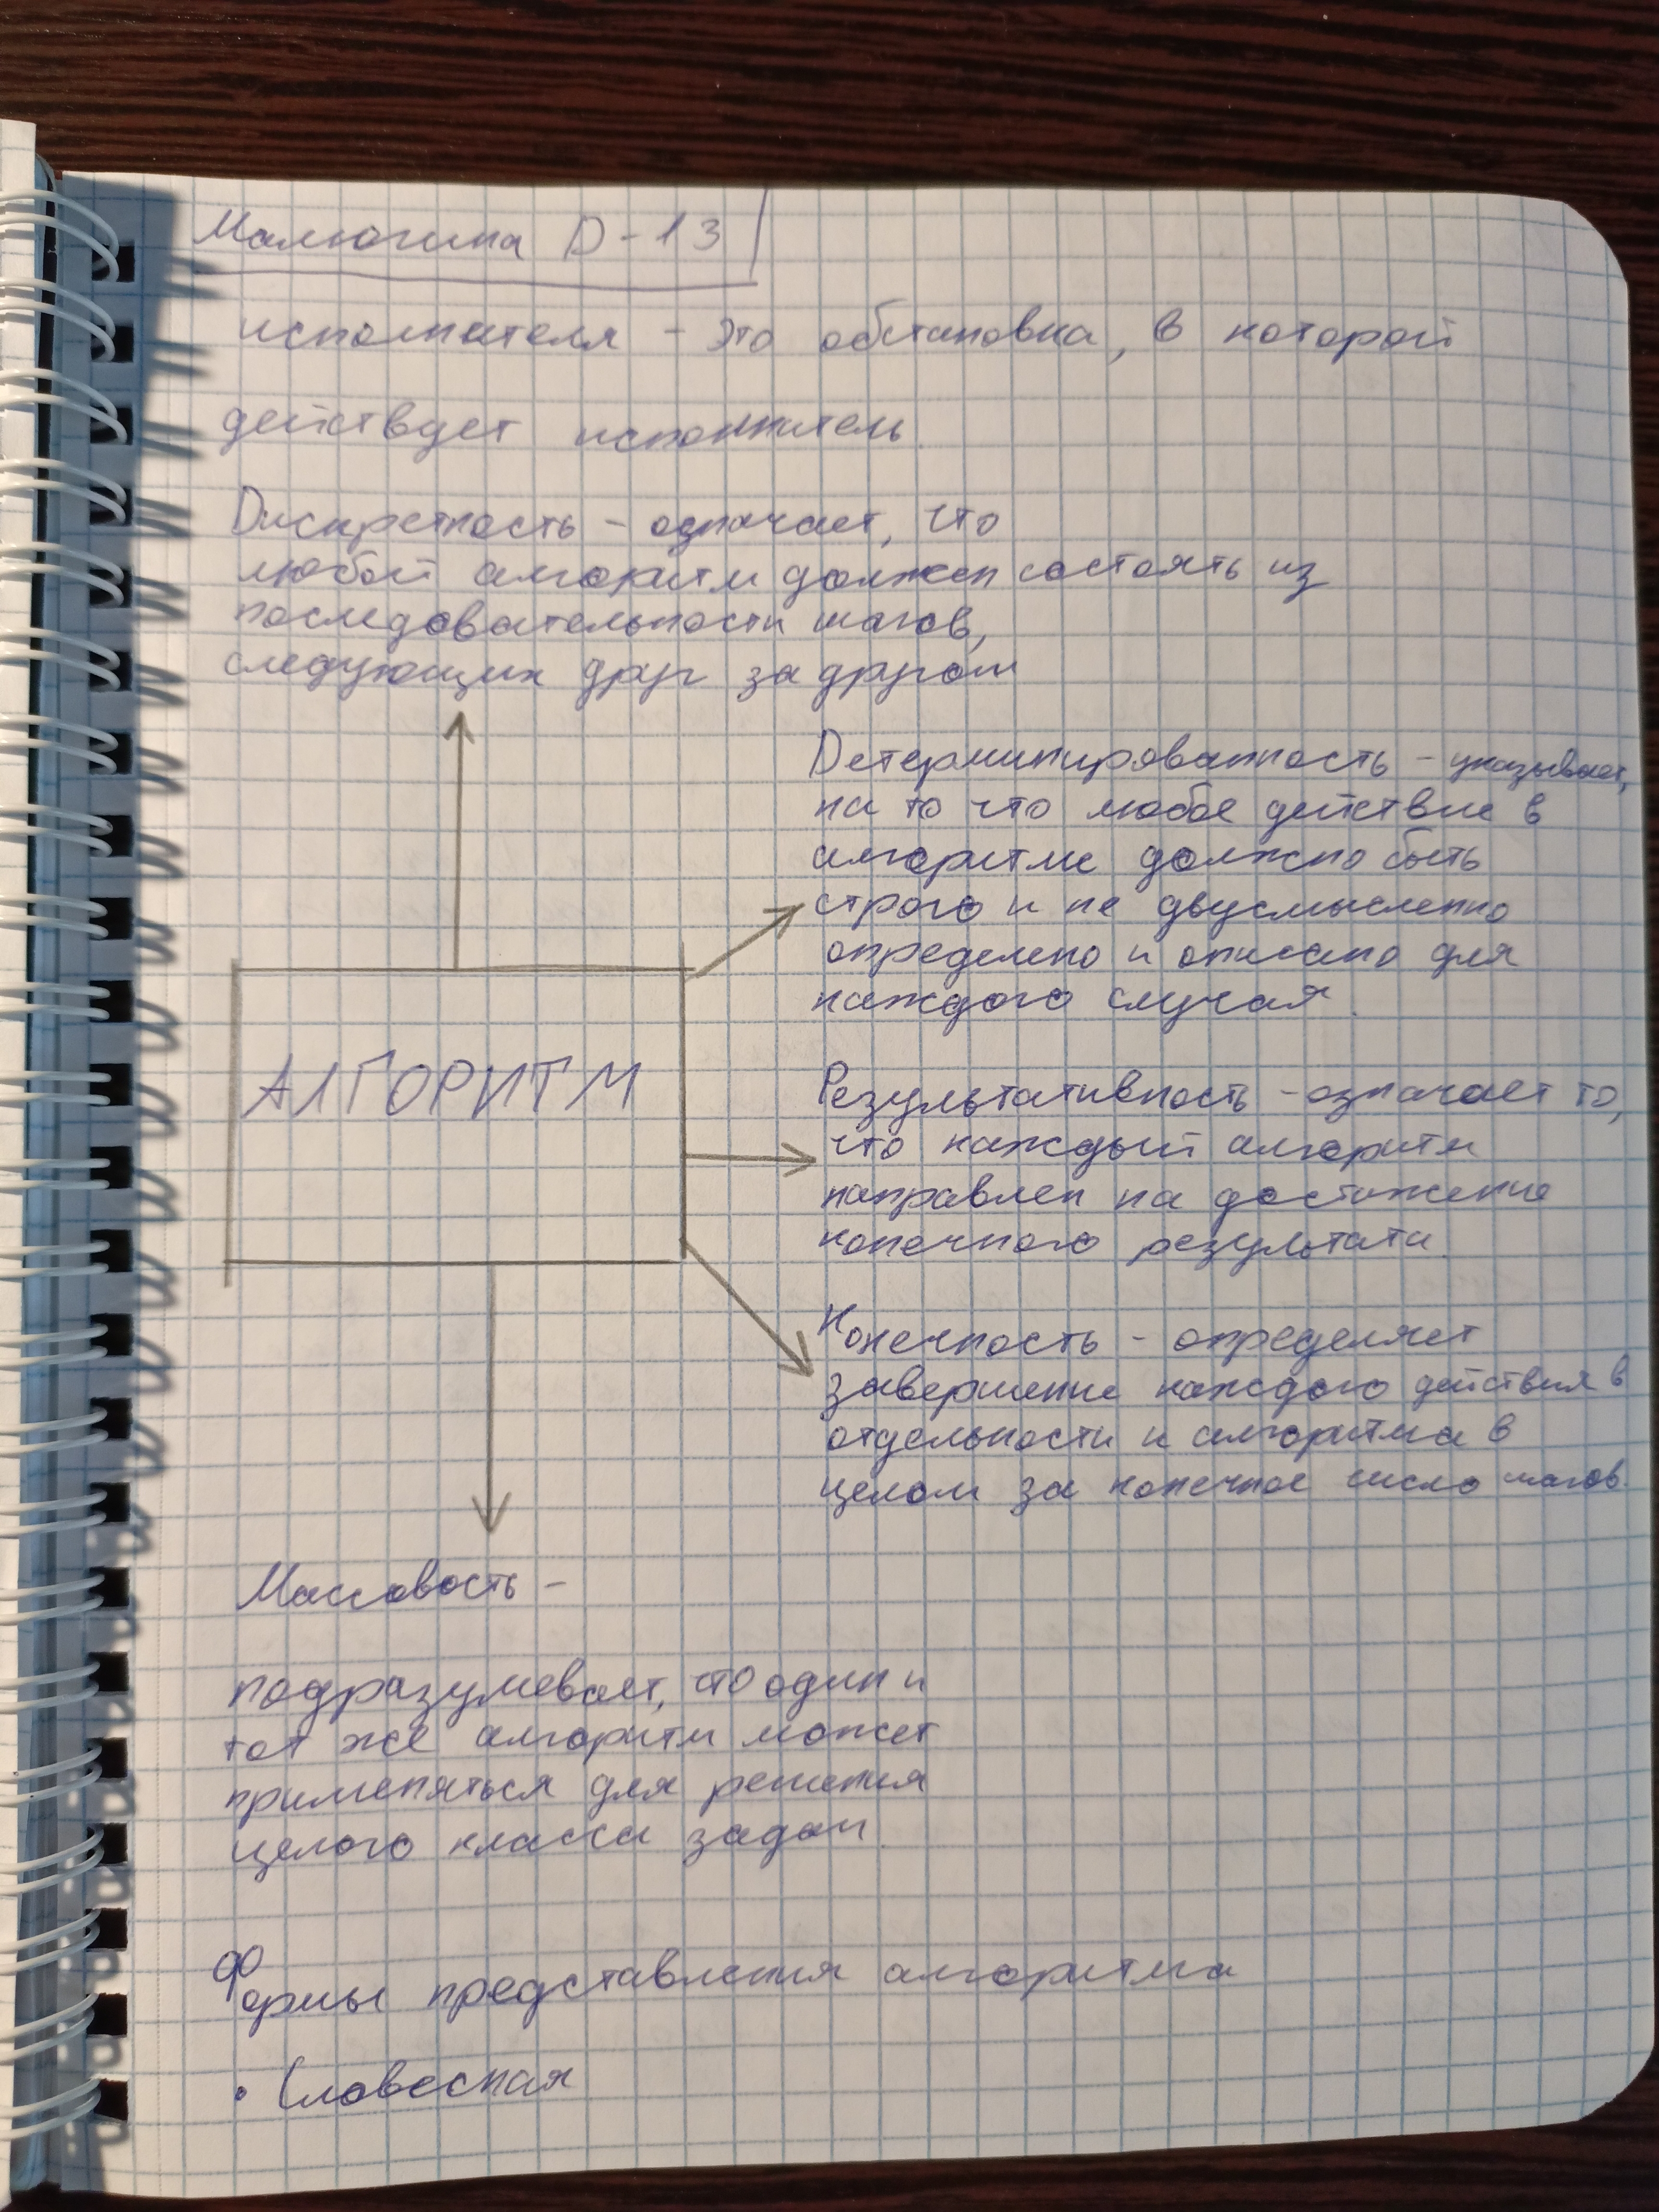 Малюгина D-13
исполнителя - это обстановка, в которой
действует исполнитель.
Дискретность - означает, что
любой алгоритм должен состоять из
последовательности шагов,
следующих друг за другом
Детерминированность - указывает,
на то что любое действие в
алгоритме должно быть
строго и не двусмысленно
определено и описано для
каждого случая.
АЛГОРИТМ
Результативность - означает то,
что каждый алгоритм
направлен на достижение
конечного результата.
Конечность - определяет
завершение каждого действия в
отдельности и алгоритма в
целом за конечное число шагов.
Массовость -
подразумевает, что один и
тот же алгоритм может
применяться для решения
целого класса задач.
Формы представления алгоритма
• Словесная